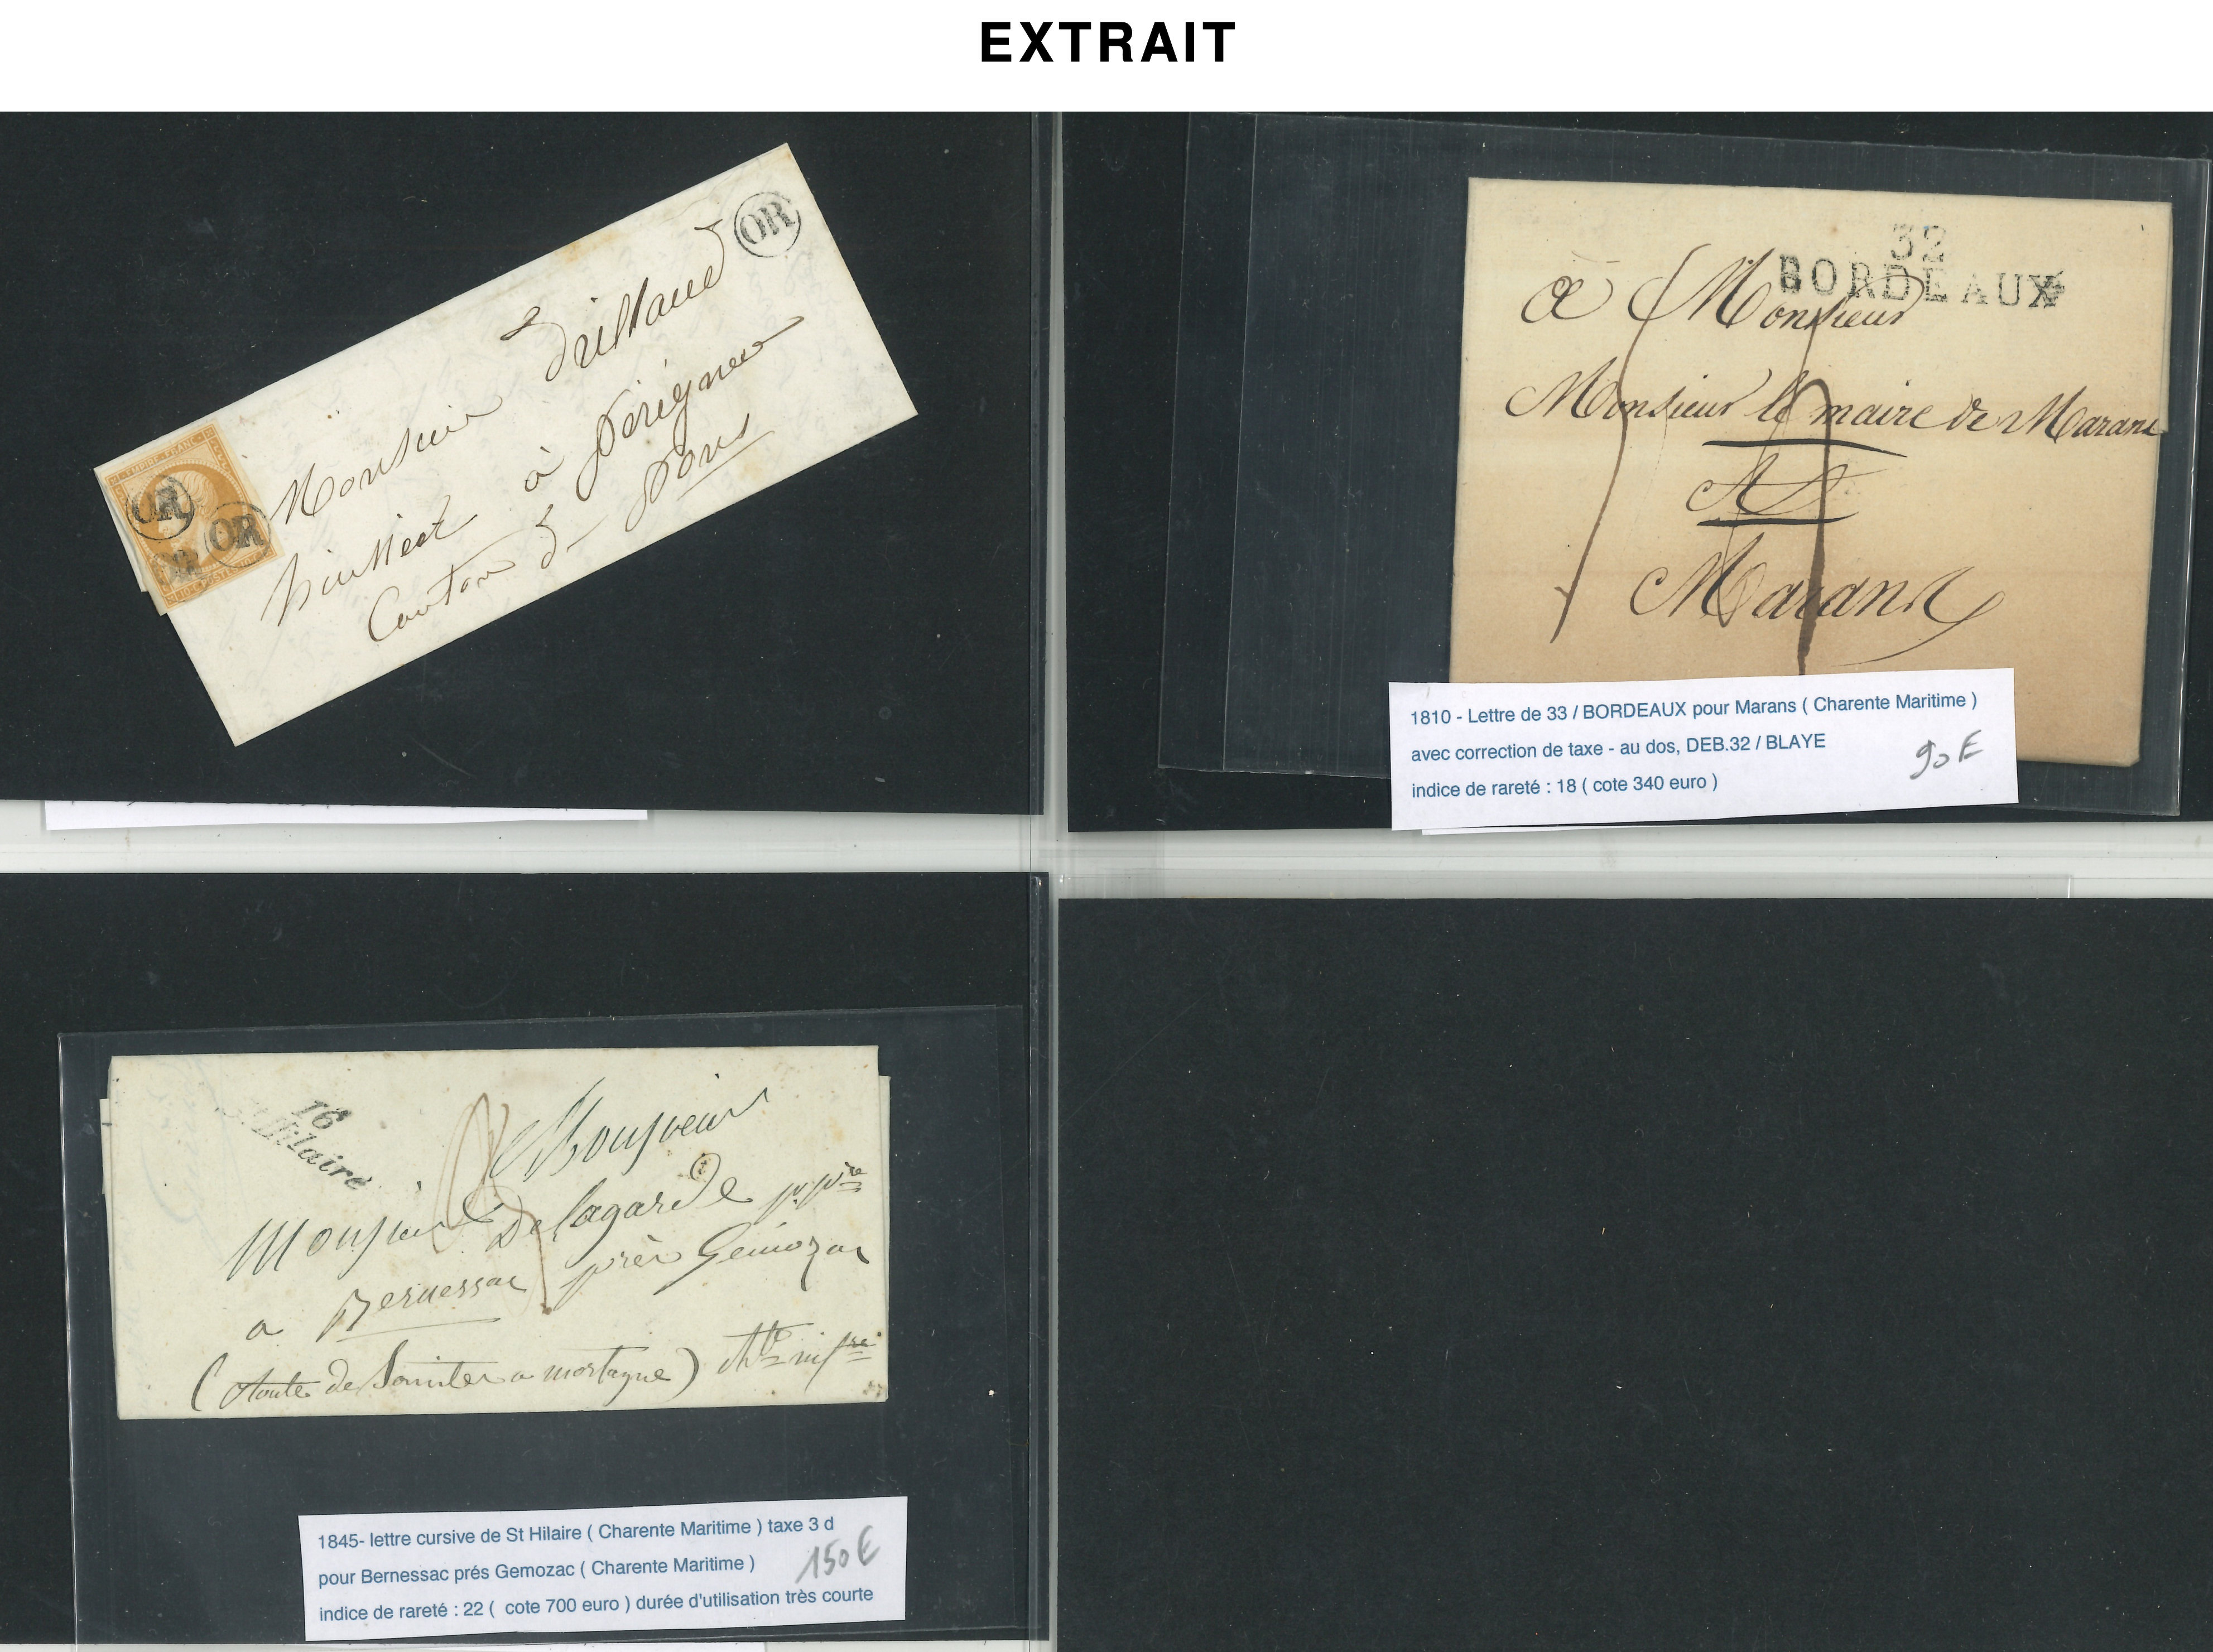 EXTRAIT
OR
Monsieur Drilhaud
huissier à Pérignac
Canton de Pons
EMPIRE FRANC
OR
OR
OR
32
BORDEAUX
à Monsieur
Monsieur le maire de Marans
A
Marans
1810 - Lettre de 33 / BORDEAUX pour Marans ( Charente Maritime )
avec correction de taxe - au dos, DEB.32 / BLAYE
indice de rareté : 18 ( cote 340 euro )
90 €
16
St Hilaire
Monsieur
Monsieur Delagarde pr pre
a Bernessac près Gemozac
( Route de Saintes a mortagne ) chte infre
1845- lettre cursive de St Hilaire ( Charente Maritime ) taxe 3 d
pour Bernessac prés Gemozac ( Charente Maritime )
indice de rareté : 22 ( cote 700 euro ) durée d'utilisation très courte
150 €